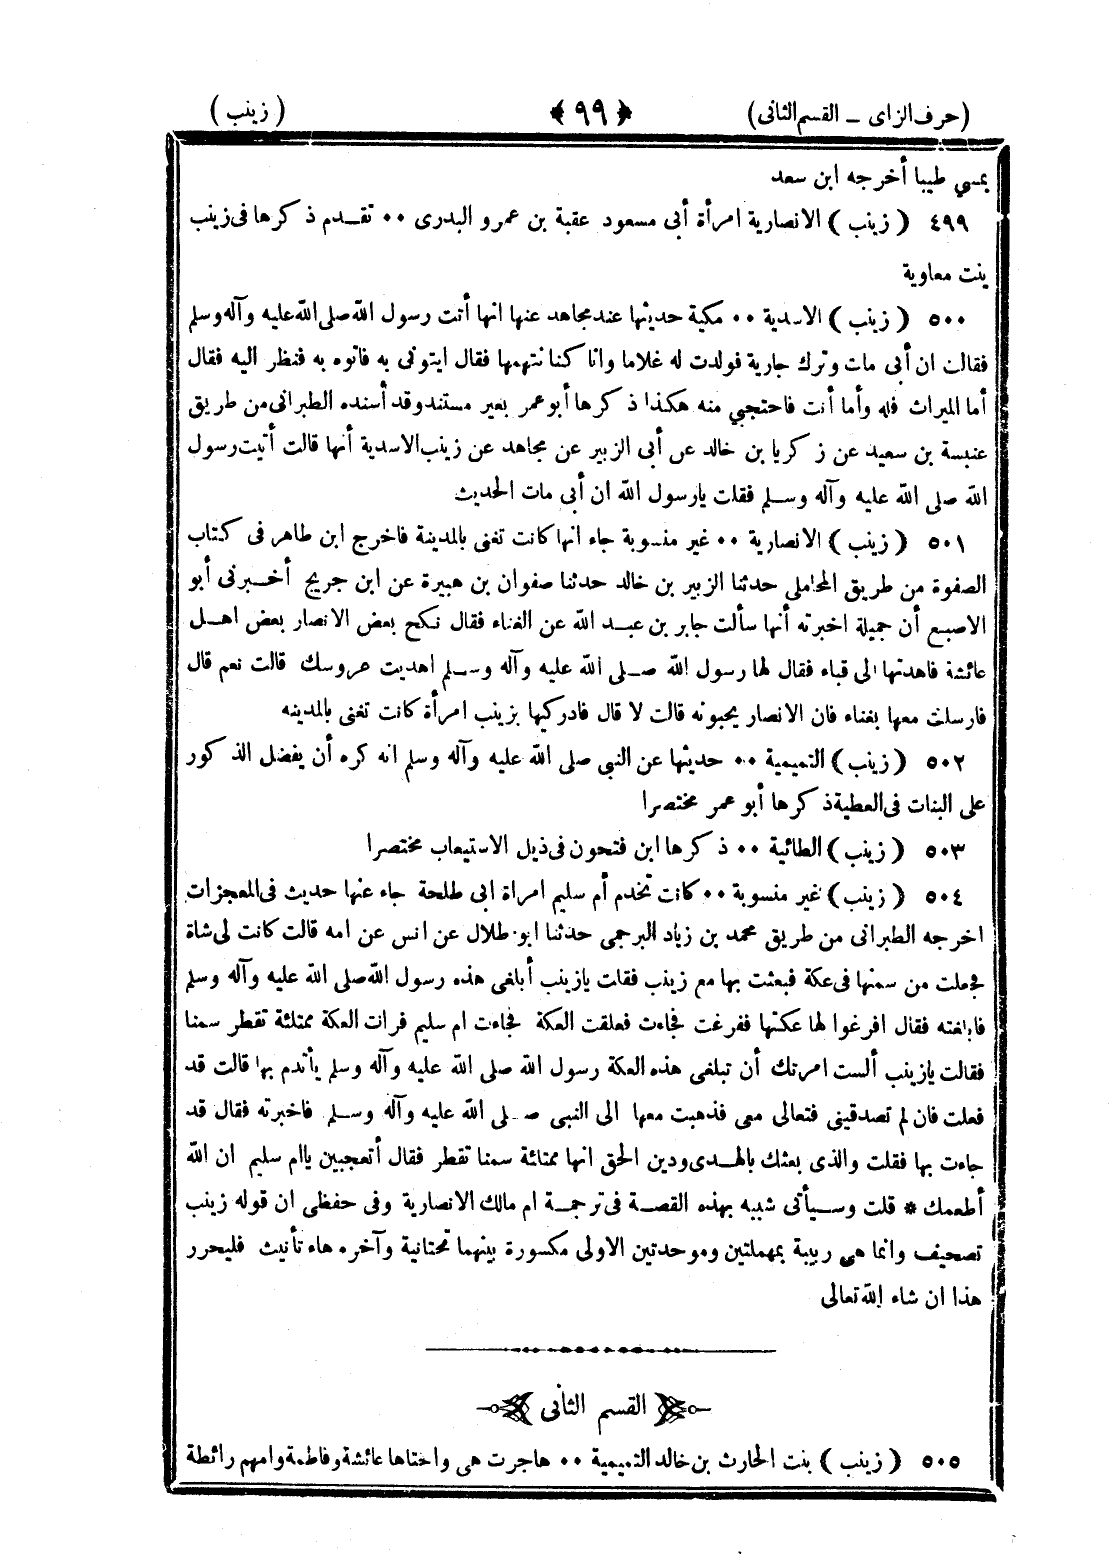 (حرف الزاى – القسم الثانى) ﴿ ٩٩ ﴾ (زينب)
يمسي طيبا أخرجه ابن سعد
٤٩٩ (زينب) الانصارية امرأة أبي مسعود عقبة بن عمرو البدرى ٠٠ تقدم ذكرها فى زينب
بنت معاوية
٥٠٠ (زينب) الاسدية ٠٠ مكية حديثها عند مجاهد عنها انها أتت رسول الله صلى الله عليه وآله وسلم
فقالت ان أبى مات وترك جارية فولدت له غلاما وانا كنا نتهمها فقال ايتونى به فاتوه به فنظر اليه فقال
أما الميراث فله وأما أنت فاحتجبي منه هكذا ذكرها أبو عمر بغير مستند وقد أسنده الطبرانى من طريق
عنبسة بن سعيد عن زكريا بن خالد عن أبى الزبير عن مجاهد عن زينب الاسدية أنها قالت أتيت رسول
الله صلى الله عليه وآله وسلم فقلت يارسول الله ان أبى مات الحديث
٥٠١ (زينب) الانصارية ٠٠ غير منسوبة جاء انها كانت تغنى بالمدينة فاخرج ابن طاهر فى كتاب
الصفوة من طريق المحاملى حدثنا الزبير بن خالد حدثنا صفوان بن هبيرة عن ابن جريج أخبرنى أبو
الاصبع أن جميلة اخبرته أنها سألت جابر بن عبد الله عن الغناء فقال نكح بعض الانصار بعض اهل
عائشة فاهدتها الى قباء فقال لها رسول الله صلى الله عليه وآله وسلم اهديت عروسك قالت نعم قال
فارسلت معها بغناء فان الانصار يحبونه قالت لا قال فادركيها بزينب امرأة كانت تغنى بالمدينه
٥٠٢ (زينب) التميمية ٠٠ حديثها عن النبى صلى الله عليه وآله وسلم انه كره أن يفضل الذكور
على البنات فى العطية ذكرها أبو عمر مختصرا
٥٠٣ (زينب) الطائية ٠٠ ذكرها ابن فتحون فى ذيل الاستيعاب مختصرا
٥٠٤ (زينب) غير منسوبة ٠٠ كانت تخدم أم سليم امرأة ابى طلحة جاء عنها حديث فى المعجزات
اخرجه الطبرانى من طريق محمد بن زياد البرجمى حدثنا ابو طلال عن انس عن امه قالت كانت لى شاة
فجعلت من سمنها فى عكة فبعثت بها مع زينب فقات يازينب أبلغى هذه رسول الله صلى الله عليه وآله وسلم
فابلغته فقال افرغوا لها عكتها ففرغت فجاءت فعلقت العكة فجاءت ام سليم فرات العكة ممتلئة تقطر سمنا
فقالت يازينب ألست امرتك أن تبلغى هذه العكة رسول الله صلى الله عليه وآله وسلم يأتدم بها قالت قد
فعلت فان لم تصدقينى فتعالى معى فذهبت معها الى النبى صلى الله عليه وآله وسلم فاخبرته فقال قد
جاءت بها فقلت والذى بعثك بالهدى ودين الحق انها ممتائة سمنا تقطر فقال أتعجبين ياام سليم ان الله
أطعمك * قلت وسيأتى شبيه بهذه القصة فى ترجمة ام مالك الانصارية وفى حفظى ان قوله زينب
تصحيف وانما هى ربيبة بمهملتين وموحدتين الاولى مكسورة بينهما تحتانية وآخره هاء تأنيث فليحرر
هذا ان شاء الله تعالى
القسم الثانى
٥٠٥ (زينب) بنت الحارث بن خالد التميمية ٠٠ هاجرت هى واختاها عائشة وفاطمة وامهم رائطة